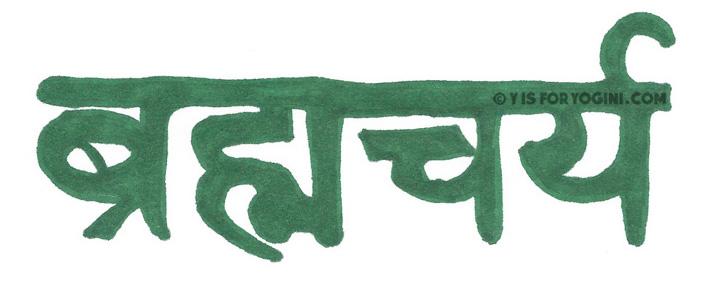 ब्रह्मचर्य
© Y IS FOR YOGINI.COM